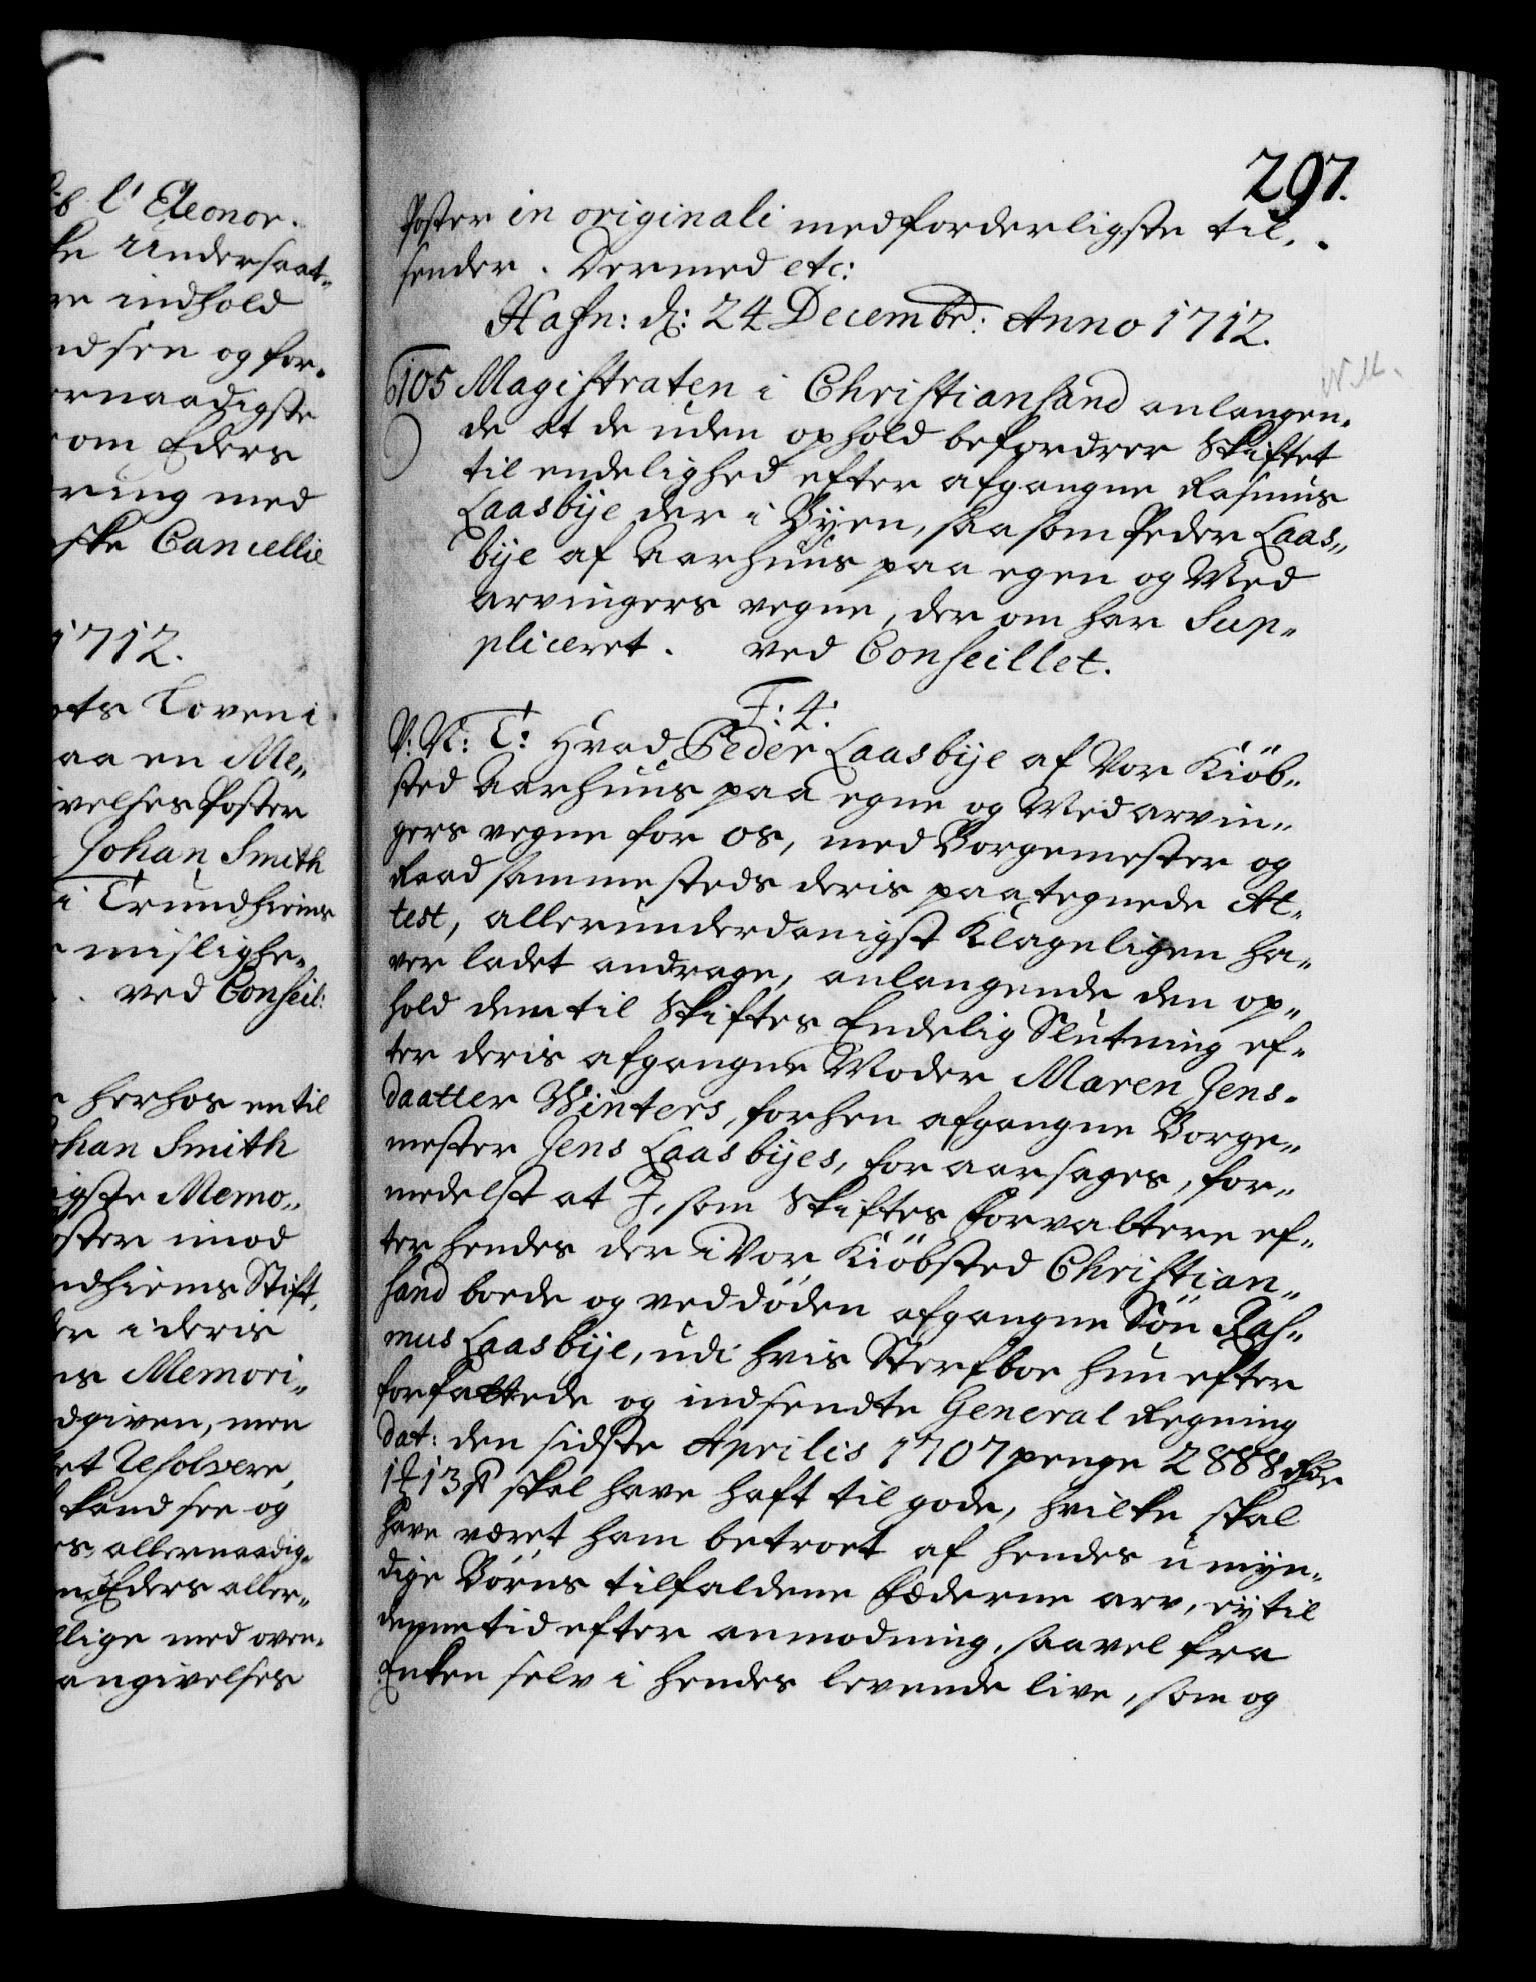 b l' Eleonor.
ke Undersaat-
re indhold
ndsen og for-
ernaadigste
om Eders
ring med
ske Cancellie
1712.
ots Loven i
aa en Me-
ivelses Poster
Johan Smith
i Trundhiems
mislighe-
. ved Conseil:
herhos en til
ohan Smith
igste Memo-
oster imod
ndhiems Stift,
er i deris
ns Memori-
dgiven, men
et Resolvere,
kand see og
es, allernaadig-
Eders aller-
llige med oven-
angivelses
297.
Poster in originali med forderligste til-
sender. Dermed etc:
Hafn: d: 24 Decembr: Anno 1712.
N.M.
105 Magistraten i Christiansand anlangen-
de at de uden ophold befordrer Skiftet
til endelighed efter afgangne Rasmus
Laasbÿe der i Bÿen, saasom Peder Laas-
bÿe af Aarhuus paa egen og Med
arvingers vegne, der om har Sup-
pliceret. ved Conseillet.
F: 4:
P: N: T: Hvad Peder Laasbÿe af Vor Kiöb-
sted Aarhuus paa egne og Med arvin-
gers vegne for os, med Borgemester og
Raad sammesteds deris paategnede At-
test, allerunderdanigst Klageligen ha-
ver ladet andrage, anlangende den op-
hold dem til Skiftes Endelig Slutning ef-
ter deris afgangne Moder Maren Jens-
daatter Winters, forhen afgangne Borge-
mester Jens Laasbÿes, foraarsages, for-
medelst at I, som Skiftes forvaltere ef-
ter hendes der i Vor Kiöbsted Christian-
sand boede og ved döden afgangne Sön Ras-
mus Laasbÿe, udi hvis Sterfboe hun efter
forfattede og indsendte General Regning
dat: den sidste Aprilis 1707 penge 2888 Rdr
1 13 ß skal have haft til gode, hvilke skal
have været ham betroet af hendes umÿn-
dige Börns tilfaldene fæderne arv, eÿ til
denne tid efter anmodning, saavel fra
Enken selv i hendes levende live, som og